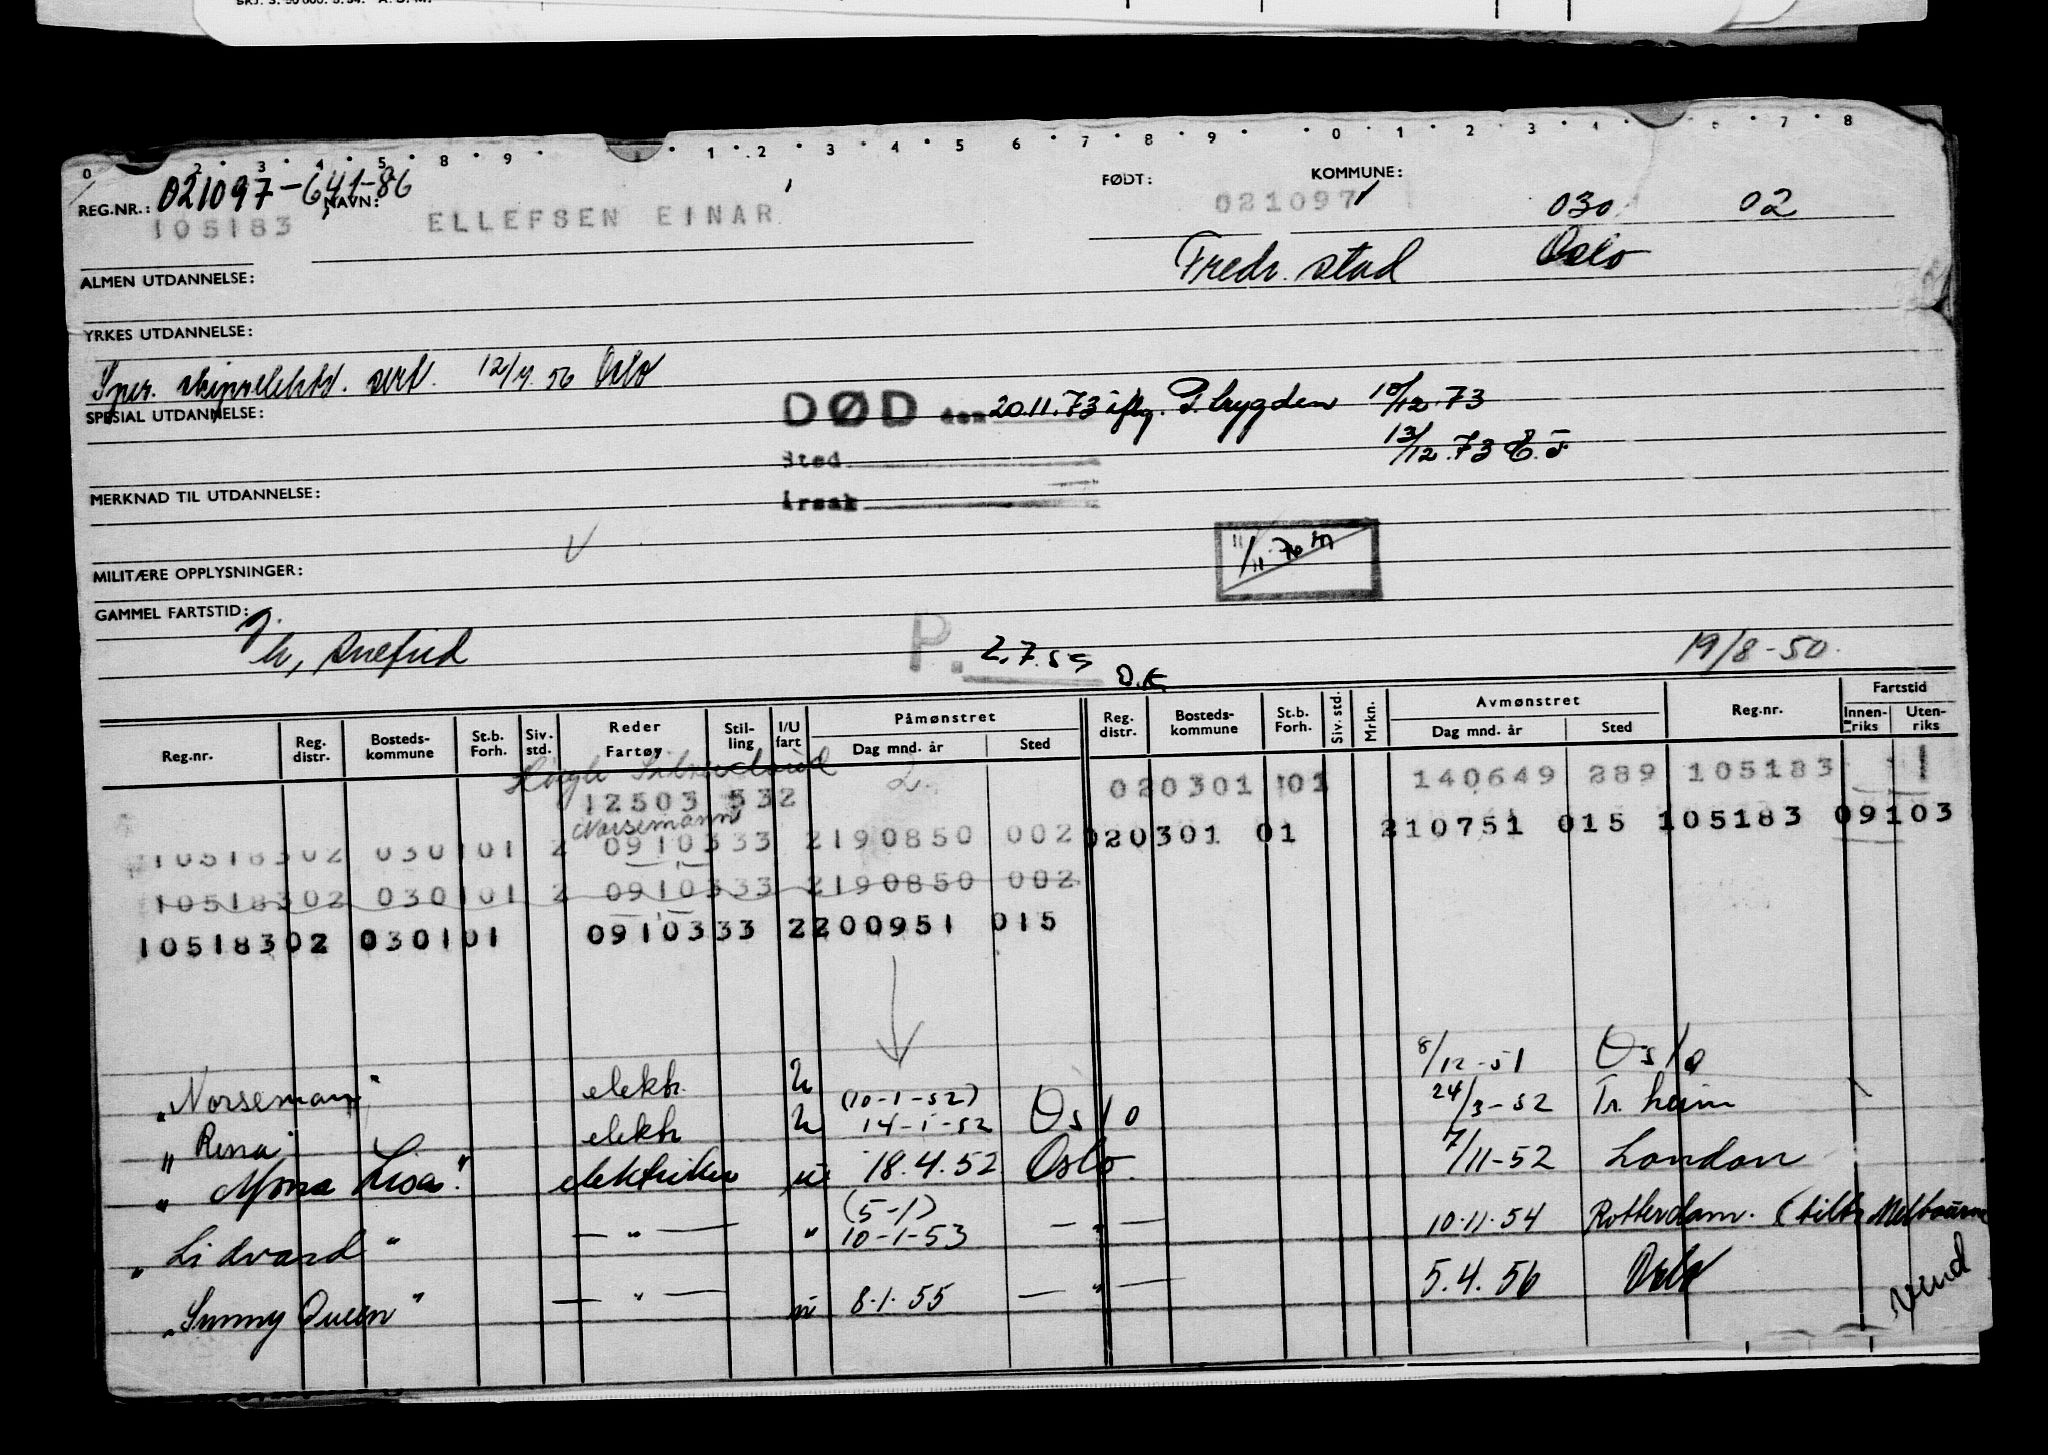 0 2 3 4 5 8 9 1 2 3 4 5 6 7 8 9 0 1 2 3 4 6 7 8
REG.NR.: 021097-641-86 NAVN: FØDT: KOMMUNE:
105183 ELLEFSEN EINAR 021097 030 02
Fredr. stad Oslo
ALMEN UTDANNELSE:
YRKES UTDANNELSE:
12/4. 56 Oslo
SPESIAL UTDANNELSE:
DØD den 20.11.73 iflg. P.trygden 10/12.73
13/12.73
Sted
Årsak
MERKNAD TIL UTDANNELSE:
11/11-70
MILITÆRE OPPLYSNINGER:
GAMMEL FARTSTID:
P. 2.7.55 O.K 19/8-50.
Reg.nr. Reg. distr. Bosteds-kommune St.b. Forh. Siv. std. Reder Fartøy Stil-ling I/U fart Påmønstret Dag mnd. år Sted Reg. distr. Bosteds-kommune St.b. Forh. Siv. std. Mrkn. Avmønstret Dag mnd. år Sted Reg.nr. Fartstid Innen-riks Uten-riks
12503 532 020301 101 140649 289 105183 1
Norsemann
10518302 030101 2 0910333 2190850 002 020301 01 210751 015 105183 09103
10518302 030101 2 0910333 2190850 002
10518302 030101 0910333 2200951 015
"Norseman" elektr. U 8/12-51 Oslo
(10-1-52)
"Rena" elektr U 14-1-52 Oslo 24/3-52 Tr. heim
"Mona Lisa" elektriker u 18.4.52 Oslo. 7/11-52 London
(5-1)
"Lidvard" — " — " 10-1-53 — " — 10.11.54 Rotterdam. (tiltr Melbourne
"Sunny Queen" — " — u 8.1.55 — " — 5.4.56 Oslo
vend